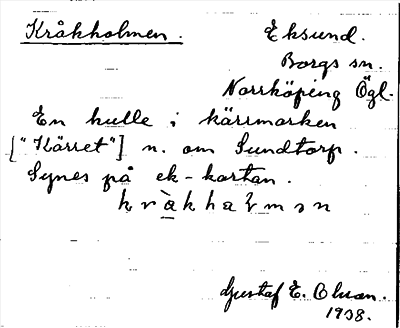 Kråkholmen.
Eksund.
Borgs sn.
Norrköping Ögl.
En kulle i kärrmarken
["Kärret"] n. om Sundtorp.
Synes på ek-kartan.
Gustaf E. Olsson.
1938.